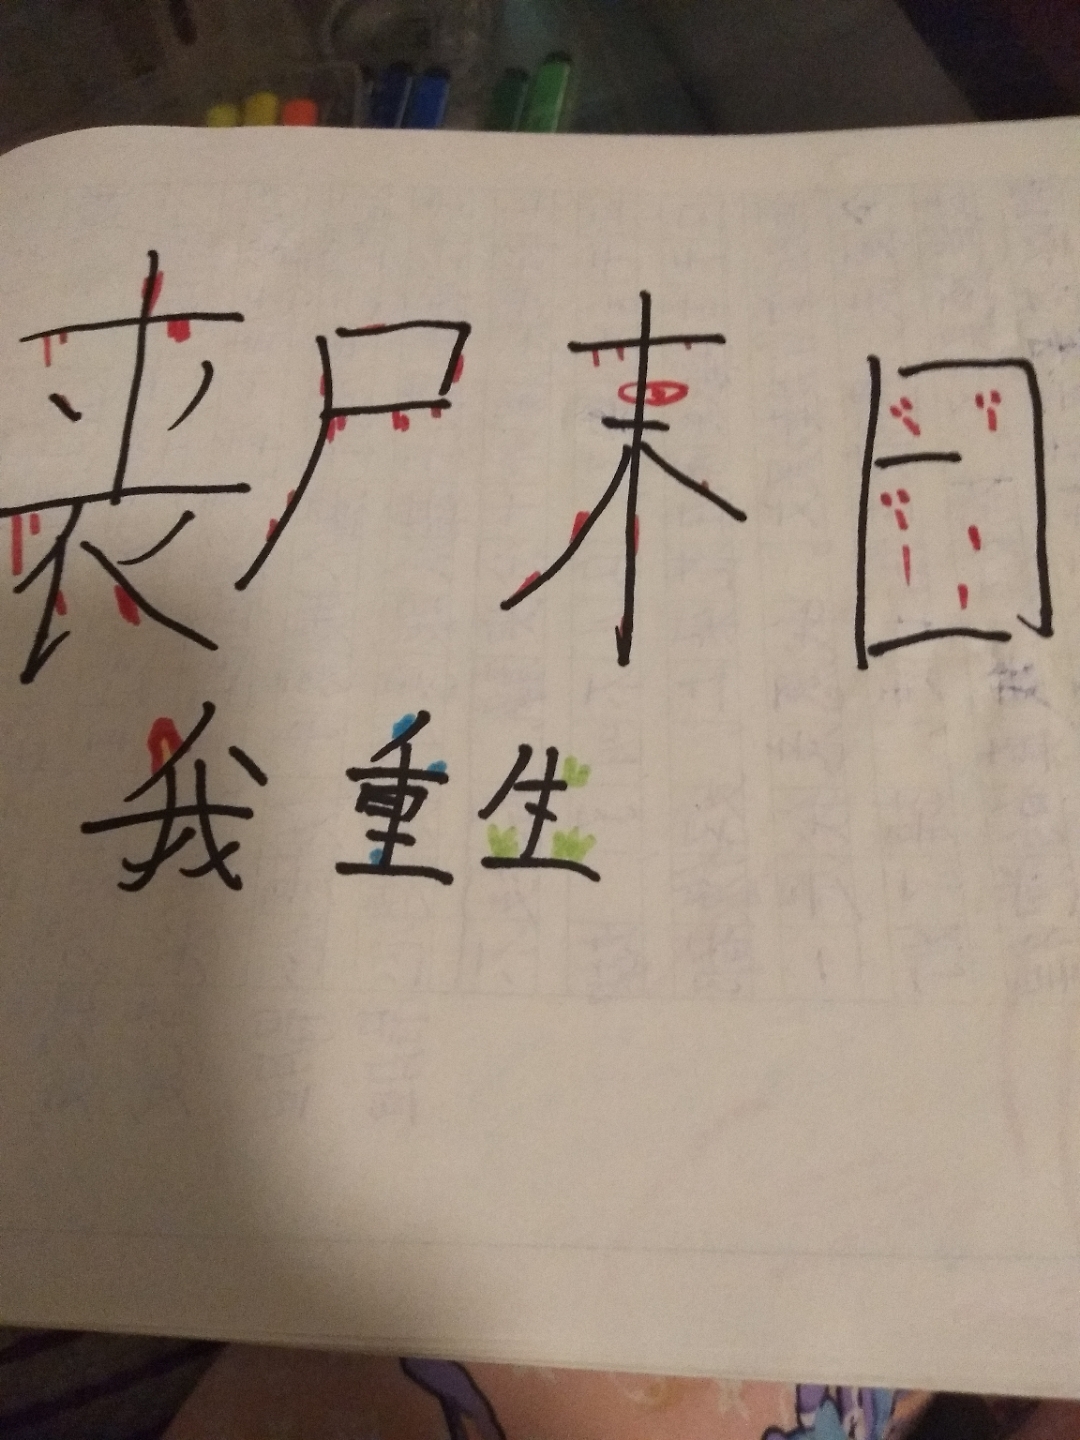 丧尸末日
我重生